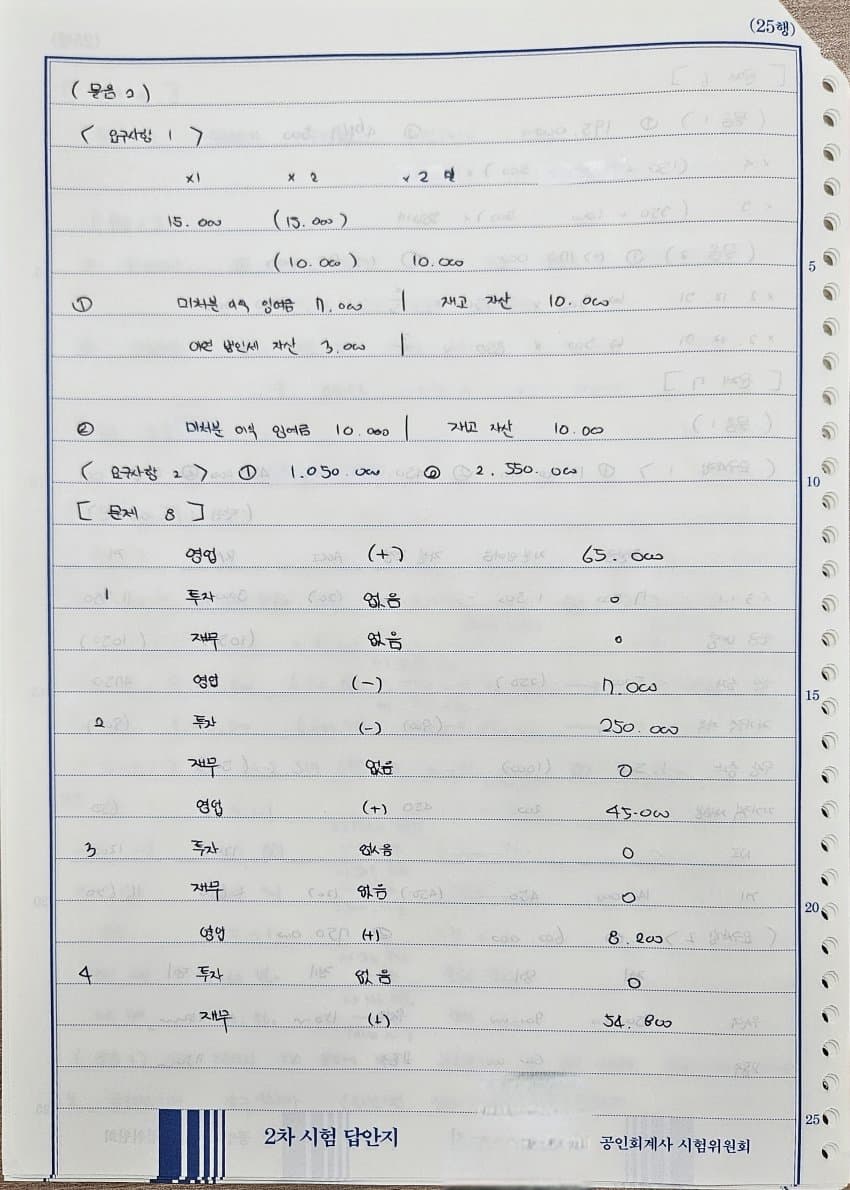 (25행)
(물음 2)
< 요구사항 1 >
x1 x2 x2 말
15.000 (15.000)
(10.000) 10.000
5
① 미처분 이익 잉여금 7.000 | 재고 자산 10.000
이연 법인세 자산 3.000 |
② 미처분 이익 잉여금 10.000 | 재고 자산 10.000
< 요구사항 2 > ① 1.050.000 ② 2.550.000
10
[ 문제 8 ]
영업 (+) 65.000
1 투자 없음 0
재무 없음 0
영업 (-) 7.000
15
2 투자 (-) 250.000
재무 없음 0
영업 (+) 45.000
3 투자 없음 0
재무 없음 0
20
영업 (+) 8.200
4 투자 없음 0
재무 (+) 54.800
25
2차 시험 답안지 공인회계사 시험위원회